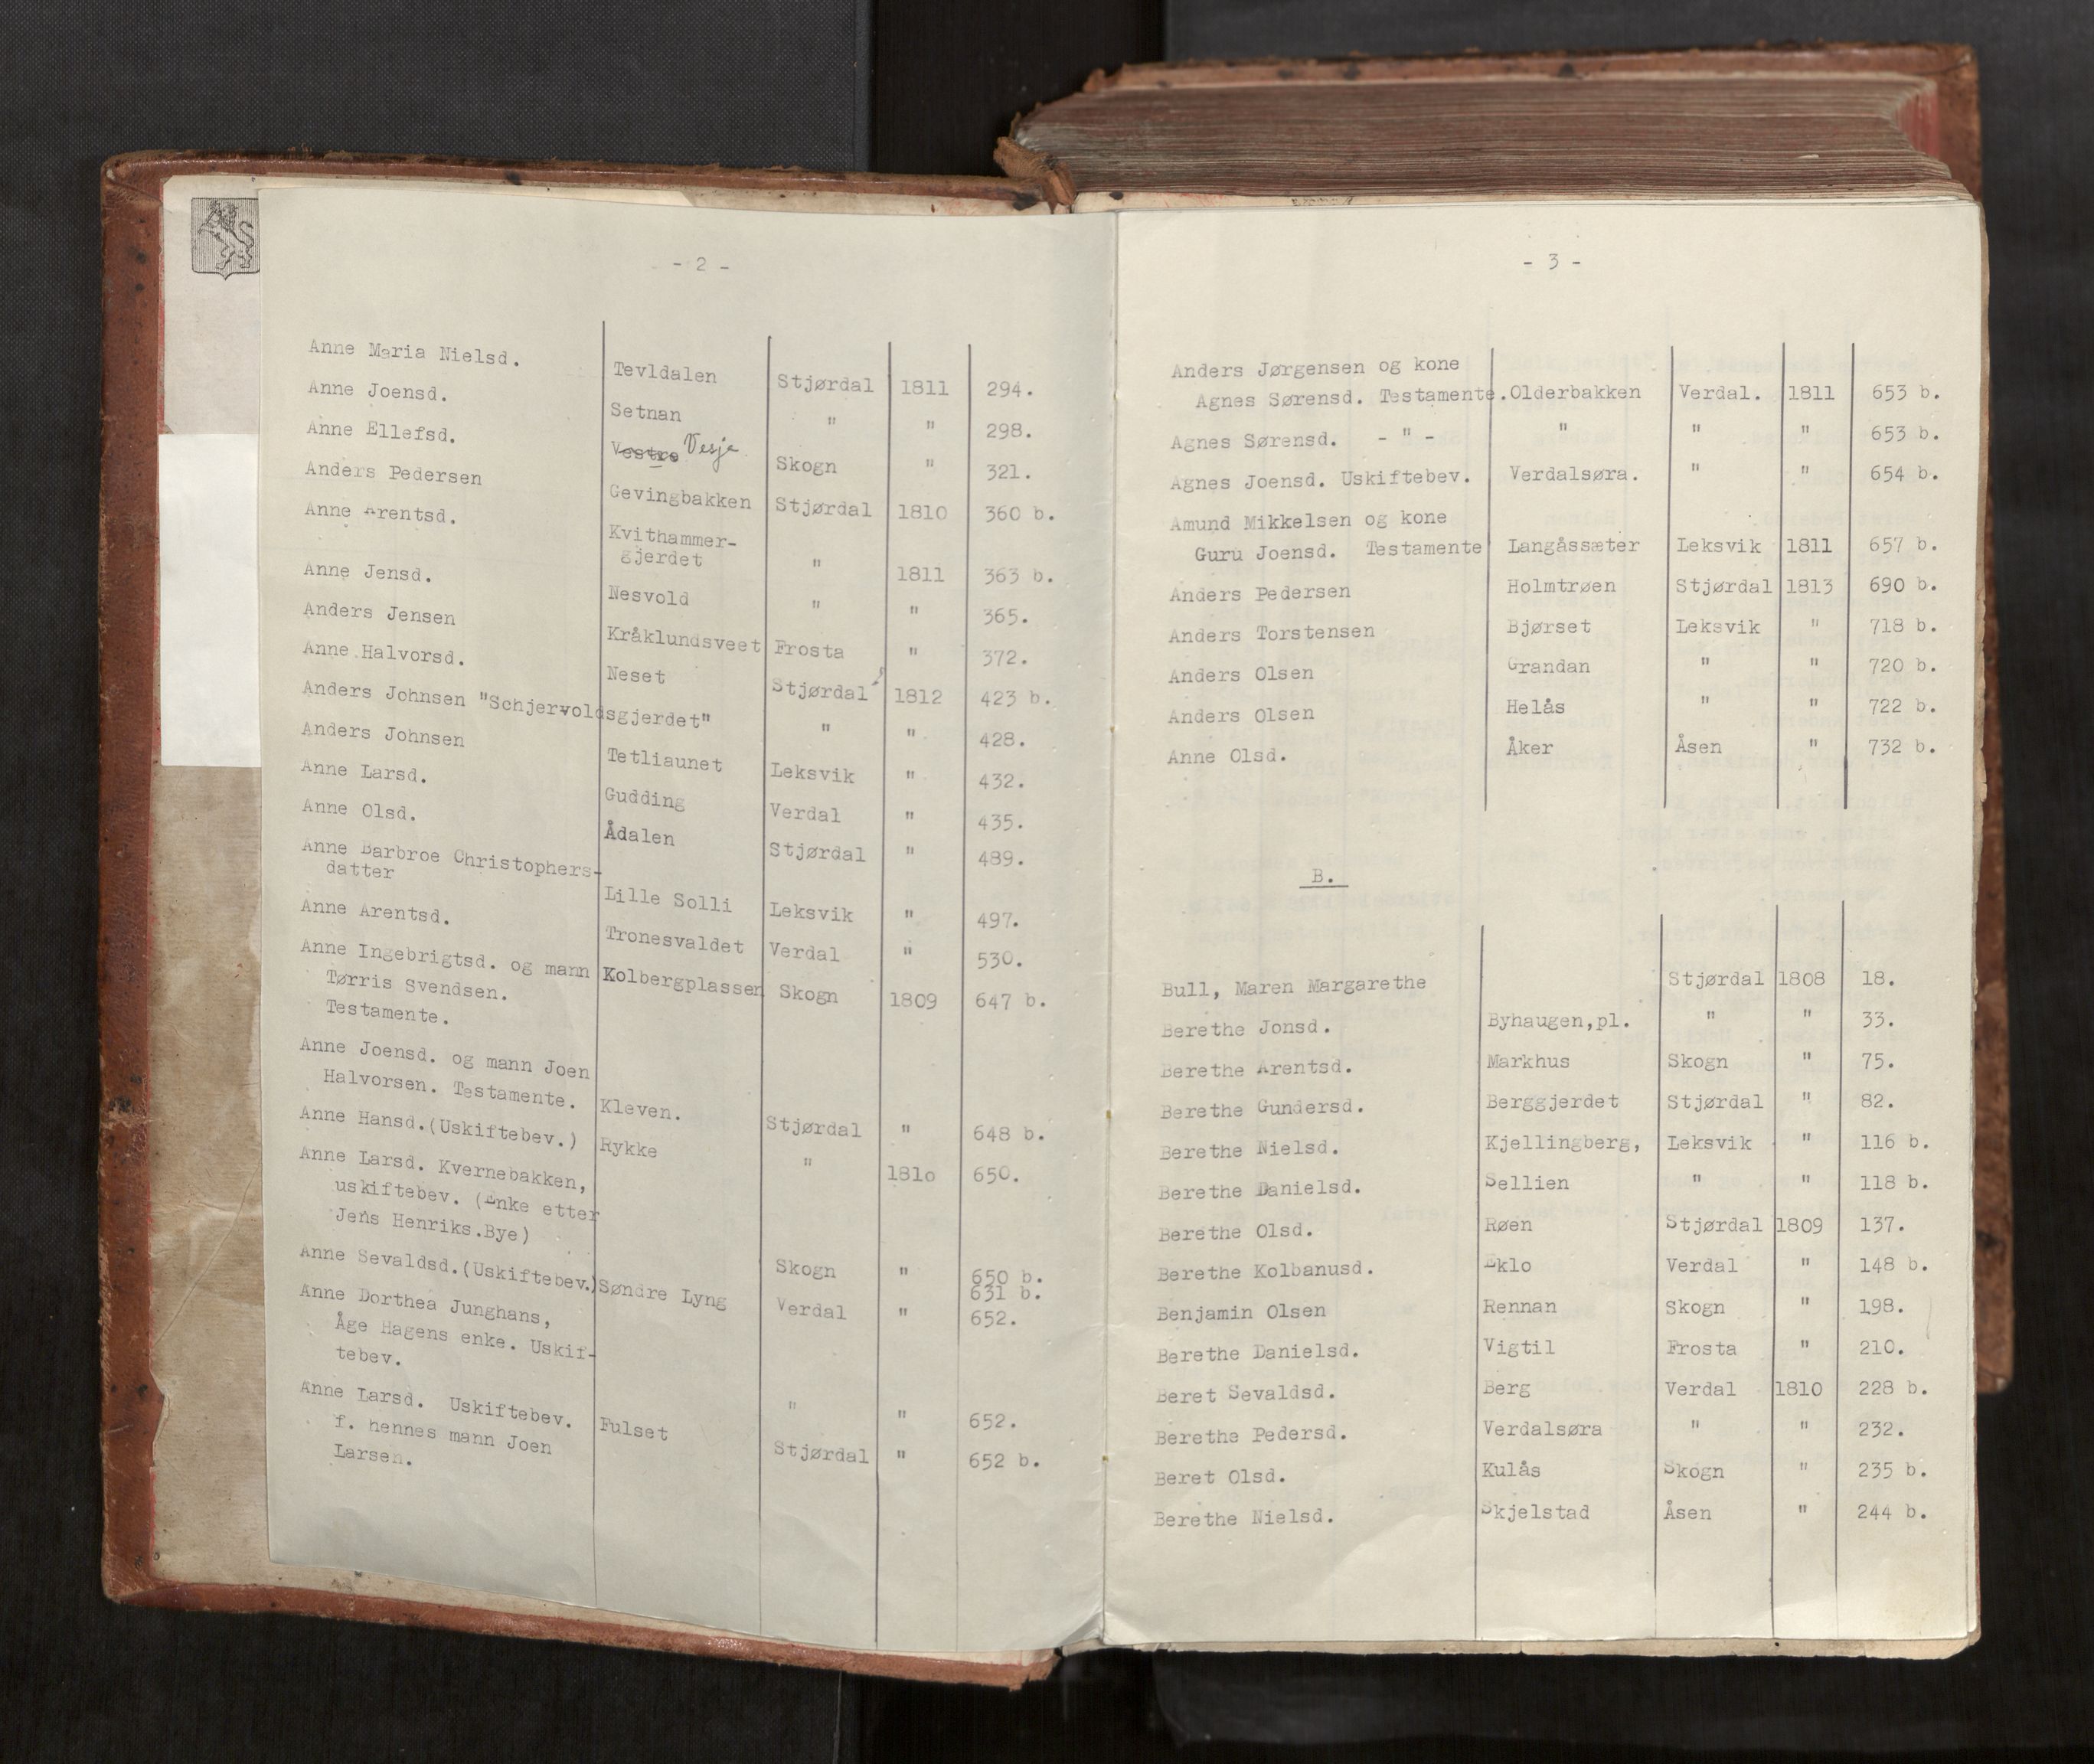 - 2 -
Anne Maria Nielsd. Tevldalen Stjørdal 1811 294.
Anne Joensd. Setnan " " 298.
Anne Ellefsd. Vestre Vesje Skogn " 321.
Anders Pedersen Gevingbakken Stjørdal 1810 360 b.
Anne Arentsd. Kvithammer-
gjerdet " 1811 363 b.
Anne Jensd. Nesvold " " 365.
Anders Jensen Kråklundsveet Frosta " 372.
Anne Halvorsd. Neset Stjørdal 1812 423 b.
Anders Johnsen "Schjervoldsgjerdet" " " 428.
Anders Johnsen Tetliaunet Leksvik " 432.
Anne Larsd. Gudding Verdal " 435.
Anne Olsd. Ådalen Stjørdal " 489.
Anne Barbroe Christophers-
datter Lille Solli Leksvik " 497.
Anne Arentsd. Tronesvaldet Verdal " 530.
Anne Ingebrigtsd. og mann Kolbergplassen Skogn 1809 647 b.
Tørris Svendsen.
Testamente.
Anne Joensd. og mann Joen
Halvorsen. Testamente. Kleven. Stjørdal " 648 b.
Anne Hansd.(Uskiftebev.) Rykke " 181o 650.
Anne Larsd. Kvernebakken,
uskiftebev. (Enke etter
Jens Henriks.Bye) Skogn " 650 b.
631 b.
Anne Sevaldsd.(Uskiftebev.) Søndre Lyng Verdal " 652.
Anne Dorthea Junghans,
Åge Hagens enke. Uskif-
tebev. " " 652.
Anne Larsd. Uskiftebev. Fulset Stjørdal " 652 b.
f. hennes mann Joen
Larsen.
- 3 -
Anders Jørgensen og kone
Agnes Sørensd. Testamente. Olderbakken Verdal. 1811 653 b.
Agnes Sørensd. - " - " " " 653 b.
Agnes Joensd. Uskiftebev. Verdalsøra. " " 654 b.
Amund Mikkelsen og kone
Guru Joensd. Testamente Langåssæter Leksvik 1811 657 b.
Anders Pedersen Holmtrøen Stjørdal 1813 690 b.
Anders Torstensen Bjørset Leksvik " 718 b.
Anders Olsen Grandan " " 720 b.
Anders Olsen Helås " " 722 b.
Anne Olsd. Åker Åsen " 732 b.
B.
Bull, Maren Margarethe Stjørdal 1808 18.
Berethe Jonsd. Byhaugen,pl. " " 33.
Berethe Arentsd. Markhus Skogn " 75.
Berethe Gundersd. Berggjerdet Stjørdal " 82.
Berethe Nielsd. Kjellingberg, Leksvik " 116 b.
Berethe Danielsd. Sellien " " 118 b.
Berethe Olsd. Røen Stjørdal 1809 137.
Berethe Kolbanusd. Eklo Verdal " 148 b.
Benjamin Olsen Rennan Skogn " 198.
Berethe Danielsd. Vigtil Frosta " 210.
Beret Sevaldsd. Berg Verdal 1810 228 b.
Berethe Pedersd. Verdalsøra " " 232.
Beret Olsd. Kulås Skogn " 235 b.
Berethe Nielsd. Skjelstad Åsen " 244 b.